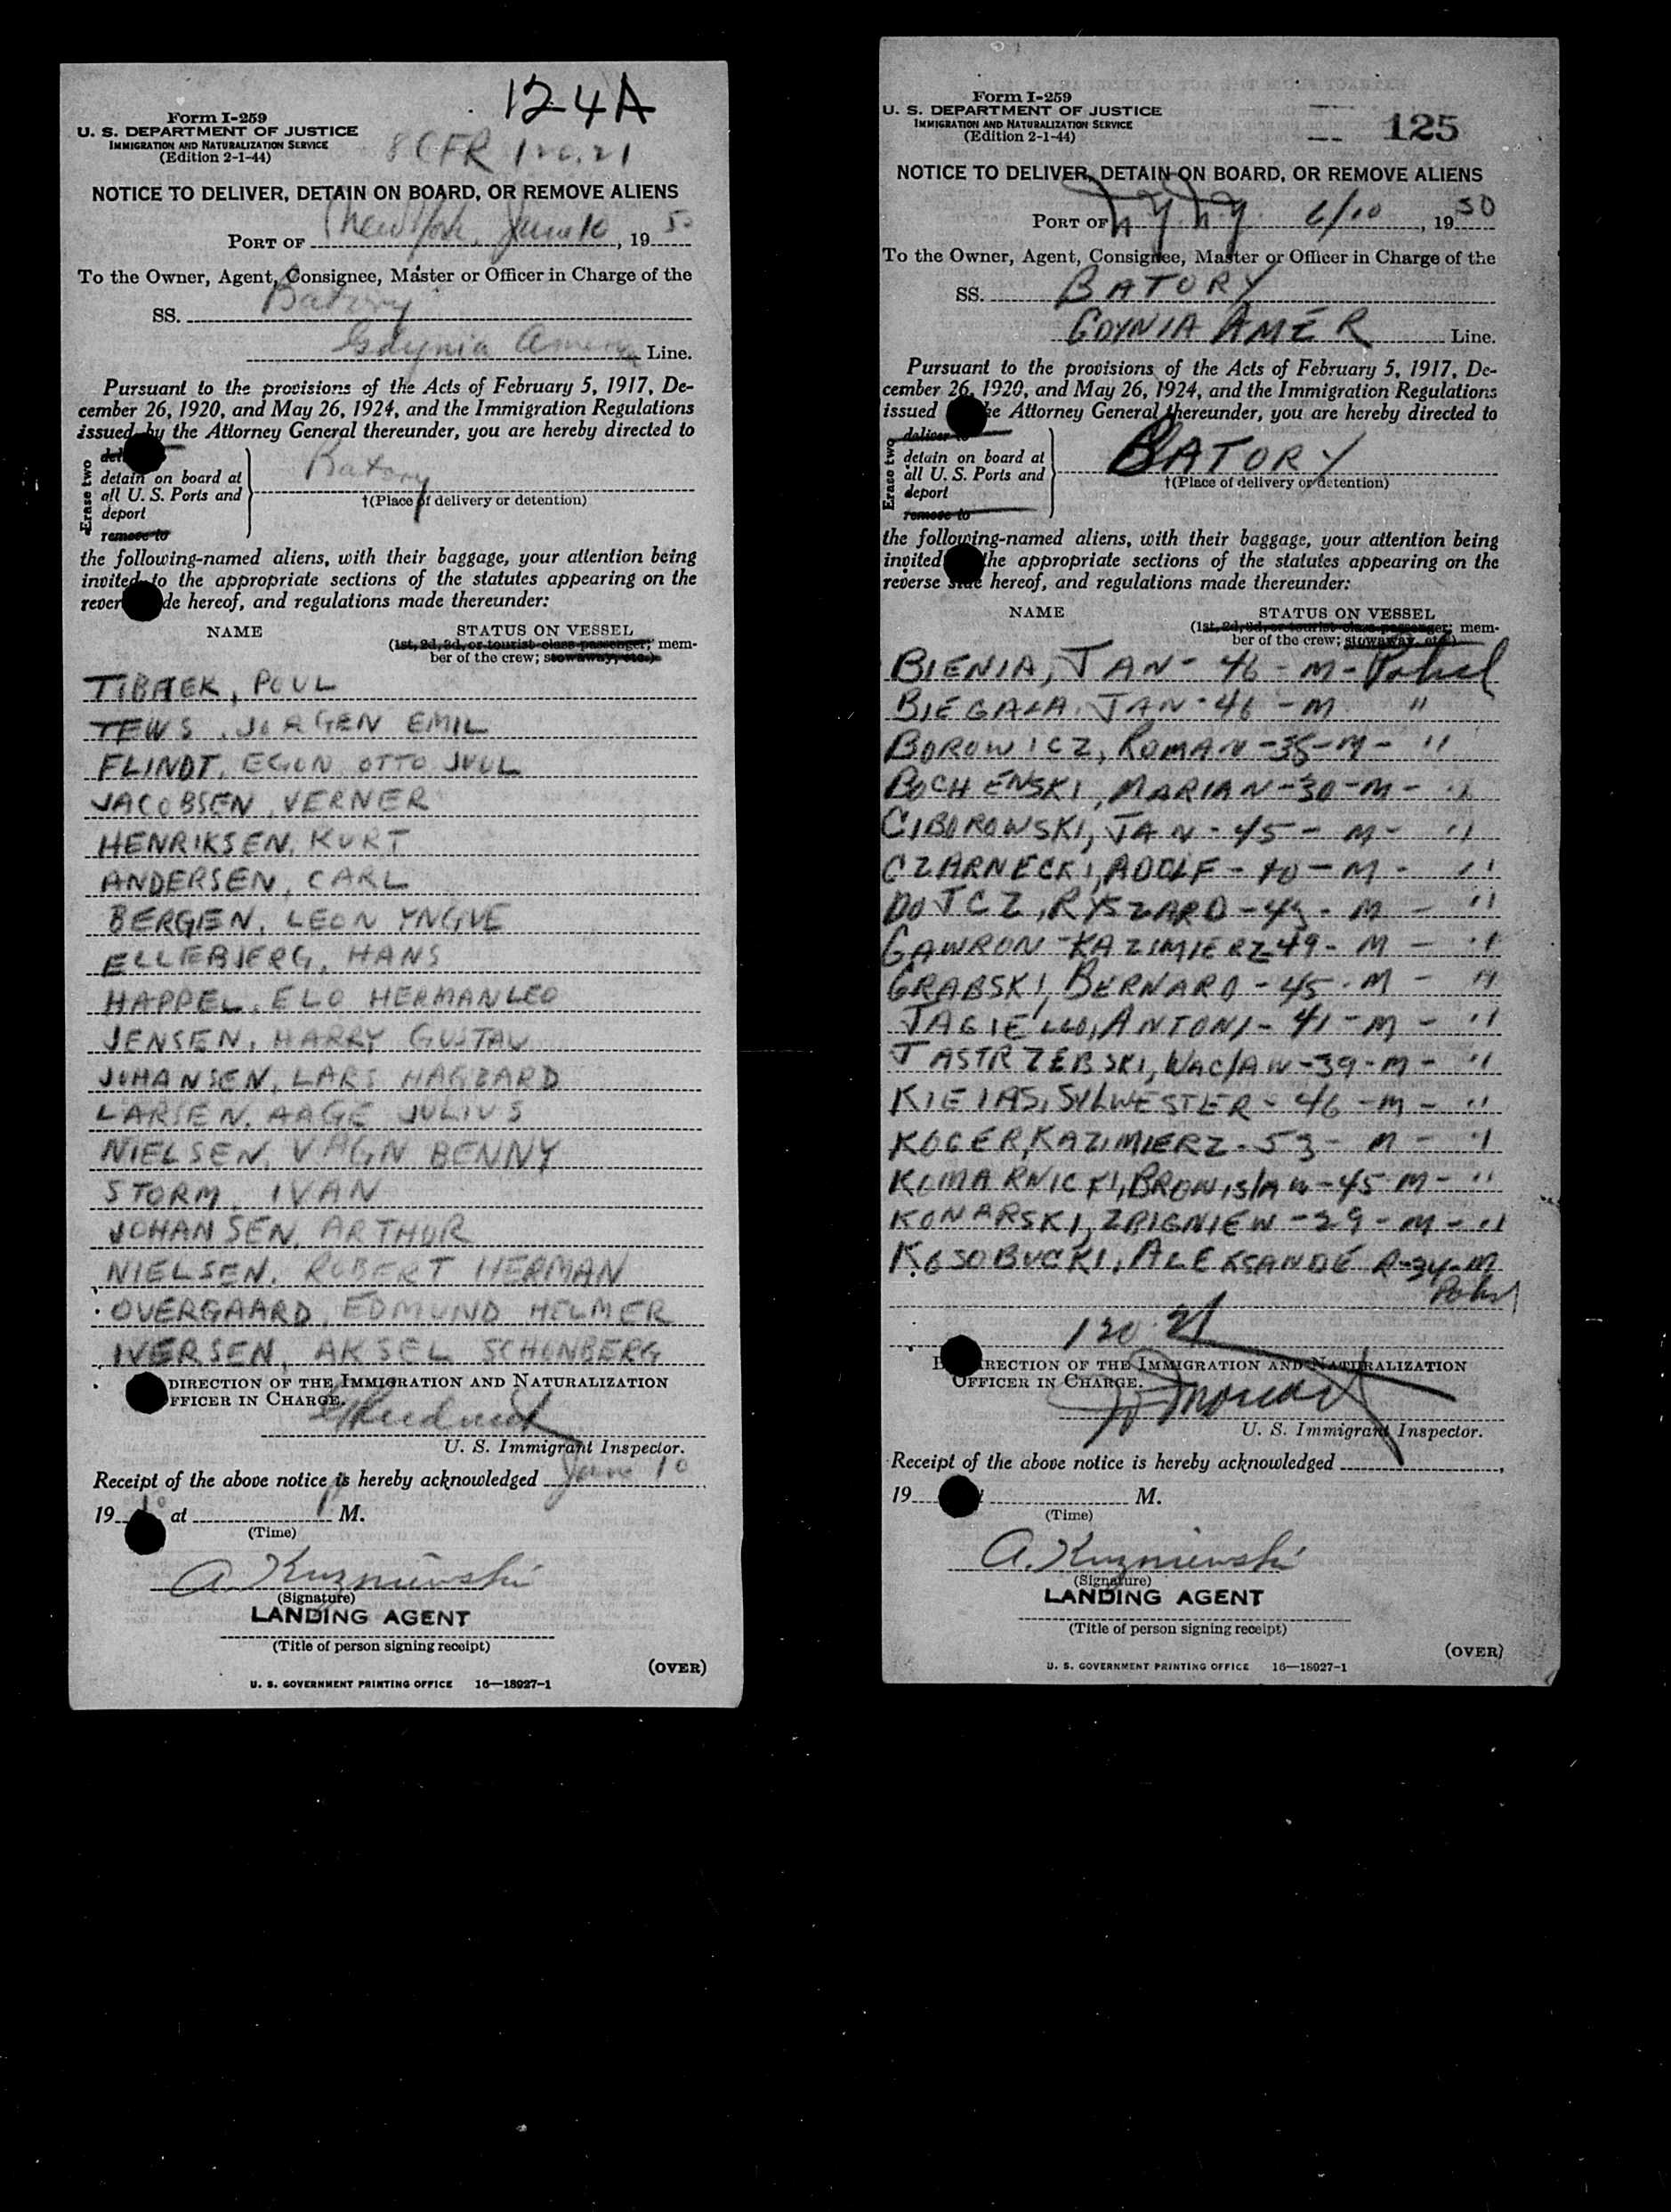 124A
Form I-259
U. S. DEPARTMENT OF JUSTICE
IMMIGRATION AND NATURALIZATION SERVICE
(Edition 2-1-44)
8 CFR 120.21
NOTICE TO DELIVER, DETAIN ON BOARD, OR REMOVE ALIENS
PORT OF New York, June 10, 1950
To the Owner, Agent, Consignee, Master or Officer in Charge of the
SS. Batory
Gdynia Line.
Pursuant to the provisions of the Acts of February 5, 1917, De-
cember 26, 1920, and May 26, 1924, and the Immigration Regulations
issued by the Attorney General thereunder, you are hereby directed to
Erase two
detain on board at
all U. S. Ports and
deport
remove to
Batory
†(Place of delivery or detention)
the following-named aliens, with their baggage, your attention being
invited to the appropriate sections of the statutes appearing on the
hereof, and regulations made thereunder:
NAME STATUS ON VESSEL
(1st, 2d, 3d, or tourist-class passenger; mem-
ber of the crew; stowaway, etc.)
POUL
TEWS, JORGEN EMIL
FLINDT, EGON OTTO JUUL
JACOBSEN, VERNER
HENRIKSEN, KURT
ANDERSEN, CARL
BERGIEN, LEON YNGVE
ELLEBJERG, HANS
HAPPEL, ELO HERMAN LEO
JENSEN, HARRY GUSTAV
JOHANSEN, LARS
LARSEN, AAGE JULIUS
NIELSEN, VAGN BENNY
STORM, IVAN
JOHANSEN, ARTHUR
NIELSEN, ROBERT HERMAN
OVERGAARD, EDMUND HELMER
IVERSEN, AKSEL SCHONBERG
DIRECTION OF THE IMMIGRATION AND NATURALIZATION
OFFICER IN CHARGE.
U. S. Immigrant Inspector.
Receipt of the above notice is hereby acknowledged June 10
19 at M.
(Time)
A. Kuzniewski
(Signature)
LANDING AGENT
(Title of person signing receipt)
(OVER)
U. S. GOVERNMENT PRINTING OFFICE 16—18027-1
Form I-259
U. S. DEPARTMENT OF JUSTICE
IMMIGRATION AND NATURALIZATION SERVICE
(Edition 2-1-44)
125
NOTICE TO DELIVER, DETAIN ON BOARD, OR REMOVE ALIENS
PORT OF N.Y. N.Y. 6/10, 1950
To the Owner, Agent, Consignee, Master or Officer in Charge of the
SS. BATORY
GDYNIA AMER Line.
Pursuant to the provisions of the Acts of February 5, 1917, De-
cember 26, 1920, and May 26, 1924, and the Immigration Regulations
issued the Attorney General thereunder, you are hereby directed to
Erase two
deliver to
detain on board at
all U. S. Ports and
deport
remove to
BATORY
†(Place of delivery or detention)
the following-named aliens, with their baggage, your attention being
invited the appropriate sections of the statutes appearing on the
reverse side hereof, and regulations made thereunder:
NAME STATUS ON VESSEL
(1st, 2d, 3d, or tourist-class passenger; mem-
ber of the crew; stowaway, etc.)
BIENIA, JAN - 46 - M -
BIEGALA, JAN - 46 - M "
BOROWICZ, ROMAN - 38 - M - "
BOCHENSKI, MARIAN - 30 - M - "
CIBOROWSKI, JAN - 45 - M - "
CZARNECKI, ADOLF - 40 - M - "
DOJCZ, RYSZARD - 43 - M - "
GAWRON - KAZIMIERZ 49 - M - "
GRABSKI, BERNARD - 45 - M - "
JAGIELLO, ANTONI - 41 - M - "
JASTRZEBSKI, WACLAW - 39 - M - "
KIELAS, SYLWESTER - 46 - M - "
KOGER, KAZIMIERZ - 53 - M - "
KOMARNICKI, BRONISLAW - 45 M - "
KONARSKI, ZBIGNIEW - 29 - M - "
KOSOBUCKI, ALEKSANDER - 34 - M
120.21
DIRECTION OF THE IMMIGRATION AND NATURALIZATION
OFFICER IN CHARGE.
U. S. Immigrant Inspector.
Receipt of the above notice is hereby acknowledged ,
19 M.
(Time)
A. Kuzniewski
(Signature)
LANDING AGENT
(Title of person signing receipt)
(OVER)
U. S. GOVERNMENT PRINTING OFFICE 16—18027-1